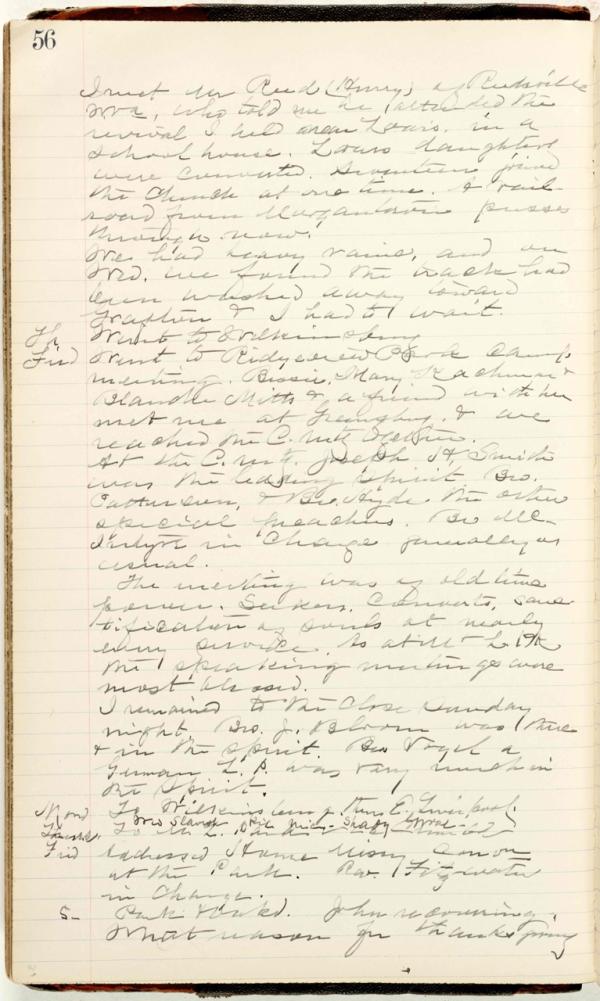 56
I met Mr Reed (Henry) of Reedsville
W Va, who told me he attended the
revival I held near Lears. in a
School house. Lears daughters
were converted. Seventeen joined
the Church at one time. A rail
road from Morgantown passes
through now.
We had heavy rains, and on
Wed. we found the track had
been washed away toward
Grafton & I had to wait.
Th Went to Wilkinsburg
Frid Went to Ridgeview Park Camp
meeting. Bessie, Mary &
Blanche Mitts & a friend with her
met me at Greensburg. & we
reached the C. Mtg together.
At the C. mtg. Joseph H Smith
was the leading Spirit. Bro.
Patterson, & Bro. Hyde the other
special preachers. Bro Mc-
Intyre in Charge generally as
usual.
The meeting was of old time
power. Seekers, Converts, sanc
tification of souls at nearly
every service. As at Mt L Pk
the speaking meetings were
most blessed.
I remained to the Close Sunday
night. Bro. J. Bloom was there
& in the Spirit. Bro Vogel a
German L. P. was very much in
the Spirit.
Mond To Wilkinsburg, then E. Liverpool.
Mrs Shady Grove
To Mt L. Park
Frid addressed Home Missy Con on
at the Park. Rev. Fitzwater
in Charge.
S- Park & Oak'd. John recovering.
What reason for thanksgiving